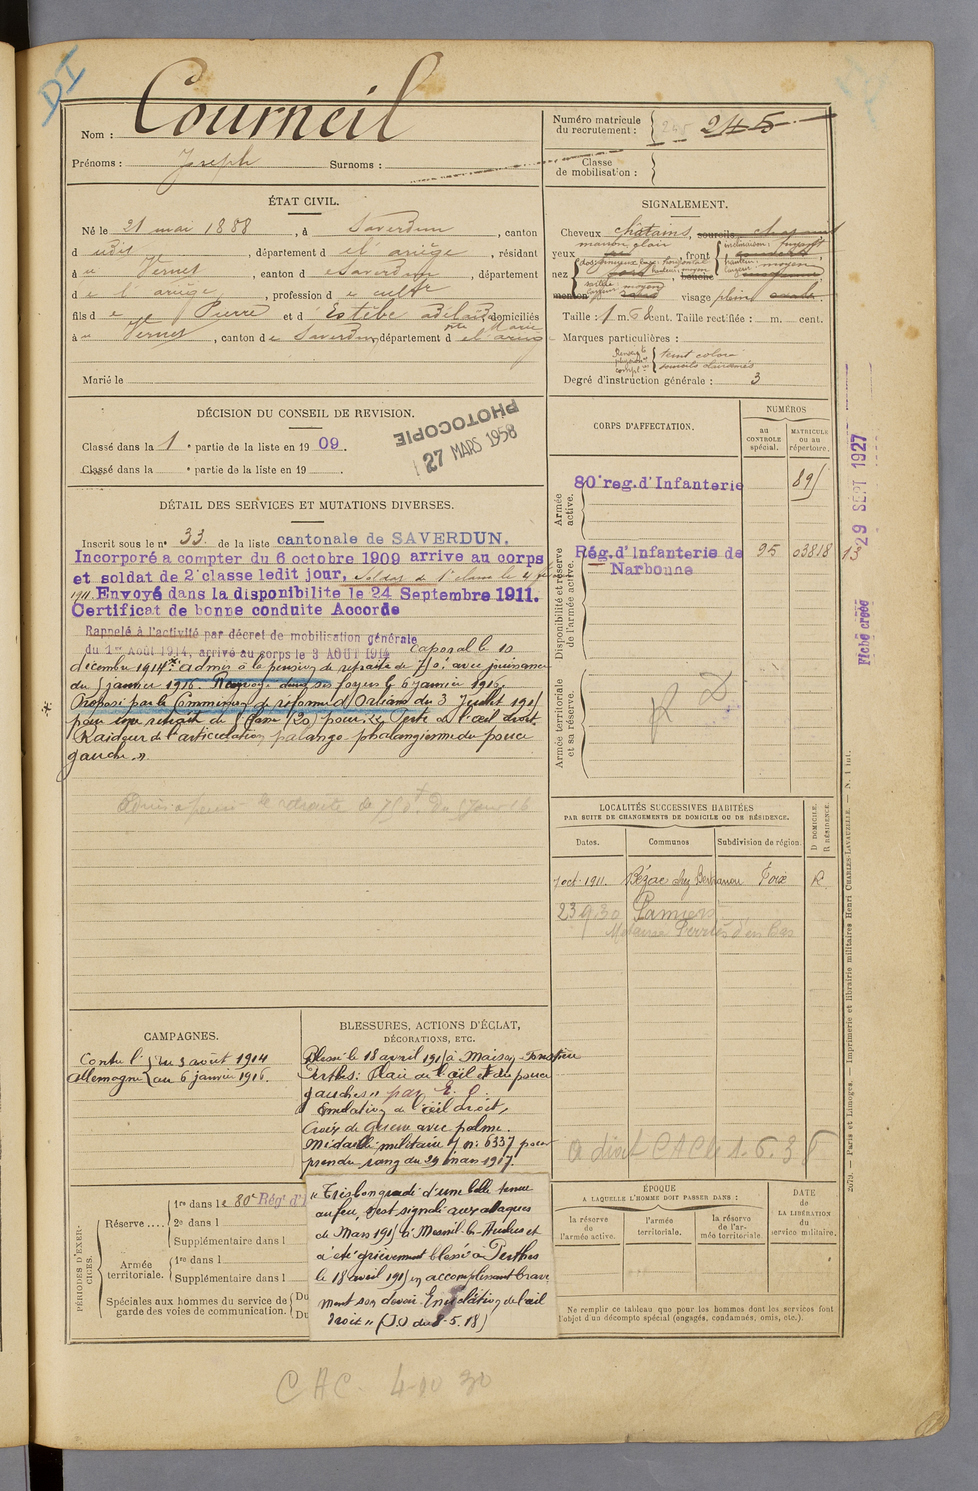 DI
Nom : Courneil
Prénoms : Joseph Surnoms :
Numéro matricule du recrutement : 245
Classe de mobilisation :
ÉTAT CIVIL.
Né le 21 mai 1888, à Saverdun, canton
d udit, département d e l'ariège, résidant
à u Vernet, canton d e Saverdun, département
d e l'ariège, profession d e cultr
fils d e Pierre et d Estèbe adélaïde domiciliés
Marie
à u Vernet, canton d e Saverdun, département d e l'arieg
Marié le
SIGNALEMENT.
Cheveux châtains, sourcils
marron clair
yeux front inclinaison : fuyant
hauteur : moyen
largeur : moyen
nez dos sinueux base horizontal
hauteur moyen
saillie moyen
largeur moyen
bouche
menton visage plein
Taille : 1 m. 6 cent. Taille rectifiée : m. cent.
Marques particulières :
teint coloré
Degré d'instruction générale : 3
DÉCISION DU CONSEIL DE REVISION.
Classé dans la 1 e partie de la liste en 1909.
Classé dans la e partie de la liste en 19
PHOTOCOPIE
27 MARS 1958
DÉTAIL DES SERVICES ET MUTATIONS DIVERSES.
Inscrit sous le n° 33 de la liste cantonale de SAVERDUN.
Incorporé a compter du 6 octobre 1909 arrive au corps
et soldat de 2e classe ledit jour, Soldat de 1e classe le 4
1911. Envoyé dans la disponibilite le 24 Septembre 1911.
Certificat de bonne conduite Accorde
Rappelé à l'activité par décret de mobilisation générale
du 1er Août 1914, arrivé au corps le 3 AOUT 1914 Caporal le 10
décembre 1914. admis à la pension de retraite de 750f avec jouissance
du 5 janvier 1916. Renvoyé dans ses foyers le 6 janvier 1916.
Proposé par la Commission de réforme d'Orléans du 3 Juillet 1915
pour une retraite de 5 classe (20) pour : "Perte de l'œil droit
Raideur de l'articulation palango-phalangienne du pouce
gauche."
Admis a pension de retraite de 750f du 5 Janv 16
CORPS D'AFFECTATION.
NUMÉROS
au CONTROLE spécial.
MATRICULE ou au répertoire.
Armée active.
80e reg. d'Infanterie 895
Disponibilité et réserve de l'armée active.
Rég. d'Infanterie de 95 03818
Narbonne
13
Armée territoriale et sa réserve.
29 SEPT 1927
Fiche créée
LOCALITÉS SUCCESSIVES HABITÉES
PAR SUITE DE CHANGEMENTS DE DOMICILE OU DE RÉSIDENCE.
Dates. Communes Subdivision de région. D DOMICILE. R RÉSIDENCE.
1 oct. 1911. Bézac chez Bertranou Foix R
23 9 30 Pamiers
Métairie Perriès d'en Bas
à droit CAC le 1.6.35
CAMPAGNES.
Contre l' du 3 août 1914
Allemagne au 6 janvier 1916.
BLESSURES, ACTIONS D'ÉCLAT, DÉCORATIONS, ETC.
Blessé le 18 avril 1915 à Maison Forestière
Perthes : Plaie de l'œil et du pouce
gauches" par E. O.
Enucléation de l'œil droit,
Croix de Guerre avec palme.
Médaille militaire n° 6337 pour
prendre rang du 29 mars 1917.
"Très bon gradé d'une belle tenue
au feu, s'est signalé aux attaques
de Mars 1915 à Mesnil-les-Hurlus et
a été grièvement blessé à Perthes
le 18 avril 1915 en accomplissant brave
ment son devoir. Enucléation de l'œil
droit" (J.O du 8-5-18)
PÉRIODES D'EXERCICES.
Réserve.... 1re dans le 80e Rég. d'I
2e dans l
Supplémentaire dans l
Armée territoriale. 1re dans l
Supplémentaire dans l
Spéciales aux hommes du service de garde des voies de communication. Du
Du
ÉPOQUE
A LAQUELLE L'HOMME DOIT PASSER DANS :
la réserve de l'armée active.
l'armée territoriale.
la réserve de l'armée territoriale
DATE de LA LIBÉRATION du service militaire.
Ne remplir ce tableau que pour les hommes dont les services font
l'objet d'un décompte spécial (engagés, condamnés, omis, etc.).
2679. — Paris et Limoges. — Imprimerie et librairie militaires Henri CHARLES-LAVAUZELLE. — N. 1 int.
CAC. 4-10 30